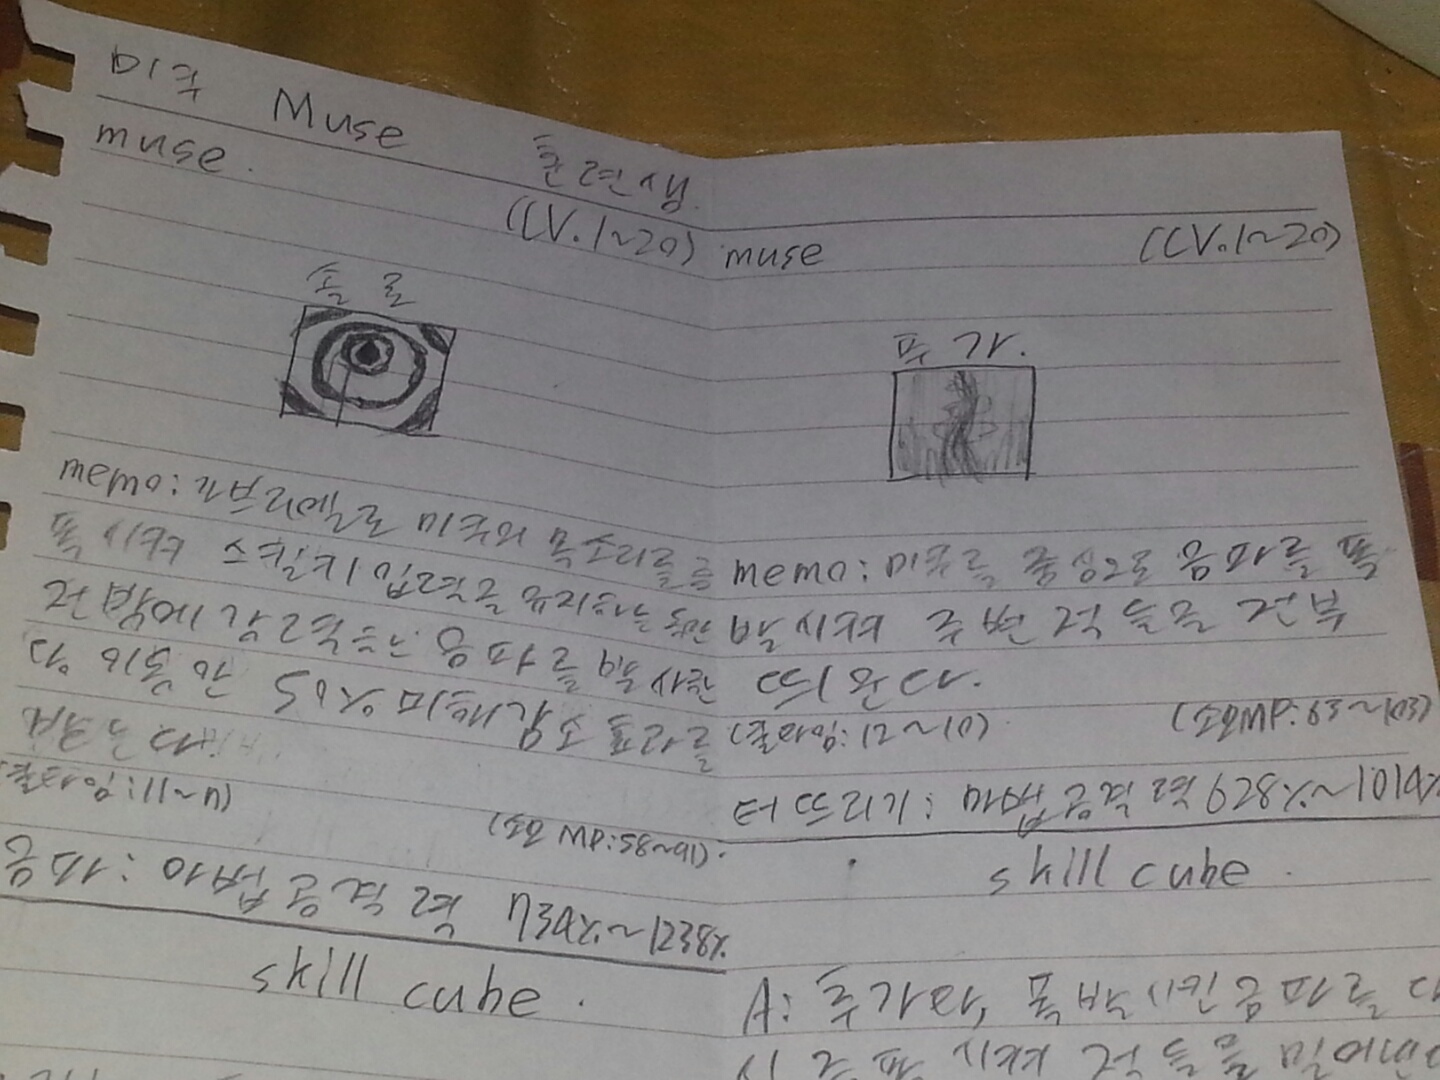 미쿠 Muse 훈련생
muse.
(LV.1~20)
솔로
memo: 가브리엘로 미쿠의 목소리를 증
폭시켜 스킬키 입력을 유지하는 동안
전방에 감격하는 음파를 발사한
50% 피해감소 효과를
(쿨타임:11~7)
(소모 MP:58~91).
음파: 마법공격력 734%~1238%
skill cube.
muse (LV.1~20)
푸가.
memo: 미쿠를 중심으로 음파를 폭
발시켜 주변 적들을 전부
띄운다.
(쿨타임:12~10) (소모MP:63~103)
터뜨리기: 마법공격력 628%~1014%
skill cube.
A: 추가타, 폭발시킨 음파를 다
시 증폭시켜 적들을